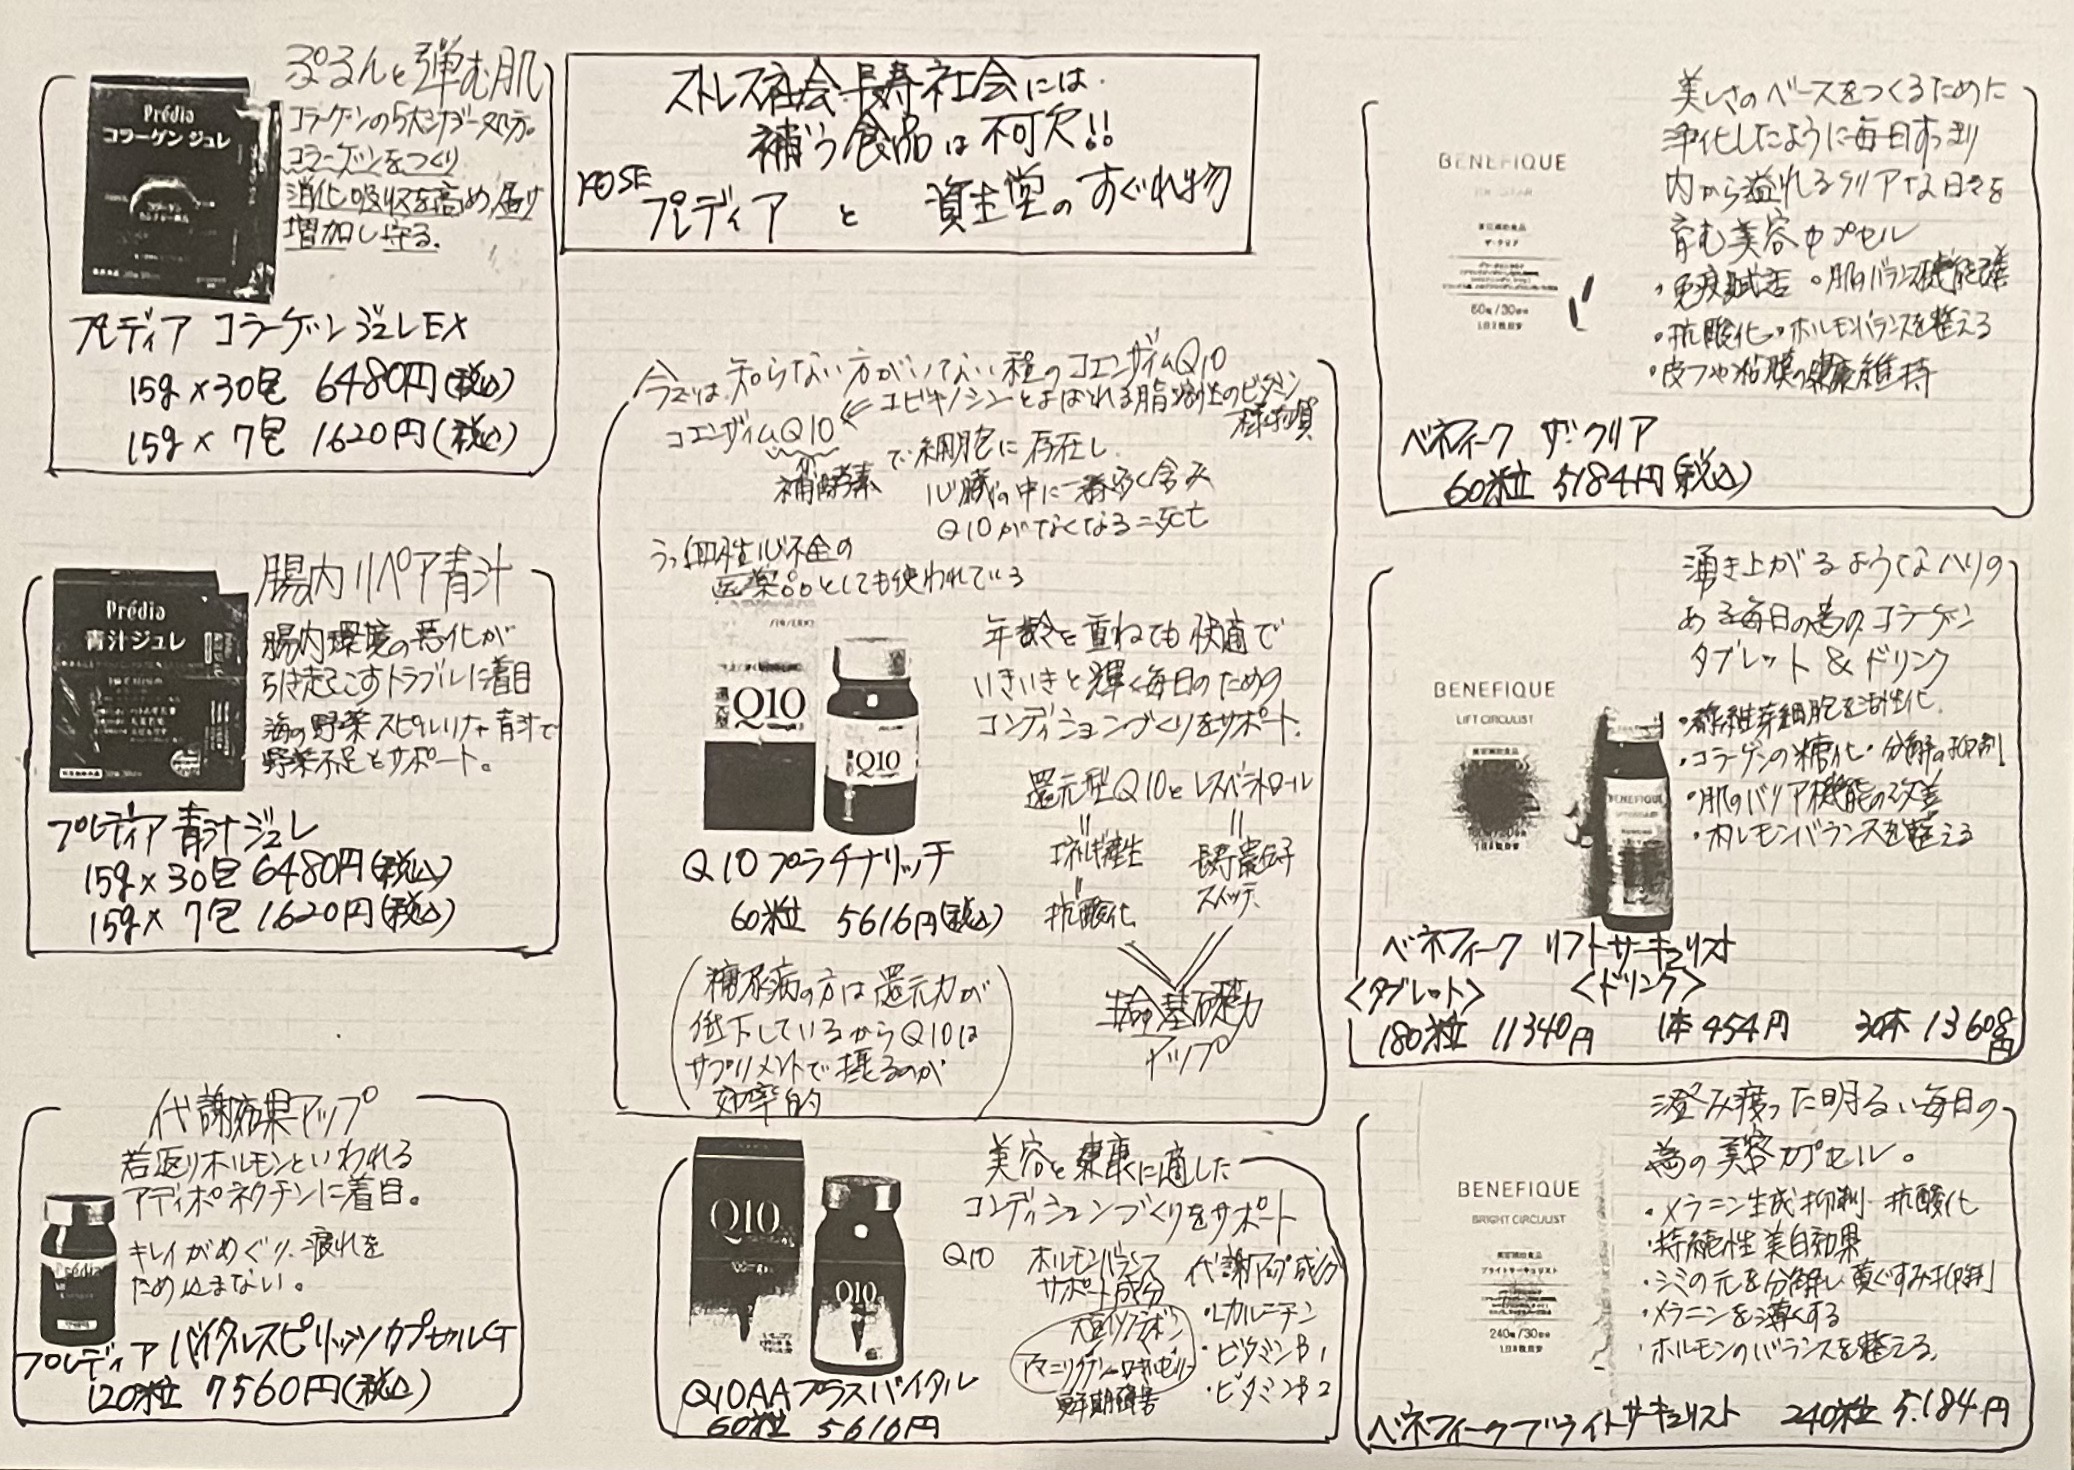 ストレス社会・長寿社会には
補う食品は不可欠!!
KOSE プレディア と 資生堂のすぐれ物
ぷるんと弾む肌
コラーゲンの5大シナジー処方。
コラーゲンをつくり
消化吸収を高め、届け
増加し守る。
Prédia
コラーゲン ジュレ
プレディア コラーゲンジュレEX
15g×30包 6480円(税込)
15g×7包 1620円(税込)
腸内リペア青汁
腸内環境の悪化が
引き起こすトラブルに着目
海の野菜スピルリナ+青汁で
野菜不足をサポート。
Prédia
青汁ジュレ
プレディア 青汁ジュレ
15g×30包 6480円(税込)
15g×7包 1620円(税込)
代謝効果アップ
若返りホルモンといわれる
アディポネクチンに着目。
キレイがめぐり、疲れを
ため込まない。
Prédia
プレディア バイタルスピリッツカプセルGT
120粒 7560円(税込)
今では知らない方がいてない程のコエンザイムQ10
コエンザイムQ10 ⇐ ユビキノンとよばれる脂溶性のビタミン
様物質
補酵素
で細胞に存在し
心臓の中に一番多く含み
Q10がなくなる=死亡
うっ血性心不全の
医薬品としても使われている
還元型
Q10
Q10
年齢を重ねても快適で
いきいきと輝く毎日のための
コンディションづくりをサポート。
還元型Q10とレスベラトロール
エネルギー産生
抗酸化
長寿遺伝子
スイッチ
生命基礎力
アップ
Q10プラチナリッチ
60粒 5616円(税込)
(糖尿病の方は還元力が
低下しているからQ10は
サプリメントで摂るのが
効率的)
美容と健康に適した
コンディションづくりをサポート
Q10
Q10
Q10
ホルモンバランス
サポート成分
大豆イソフラボン
更年期障害
代謝アップ成分
・Lカルニチン
・ビタミンB1
・ビタミンB2
Q10AAプラスバイタル
60粒 5616円
美しさのベースをつくるために
浄化したように毎日すっきり
内から溢れるクリアな日々を
育む美容カプセル
・免疫賦活 ・肌のバランス機能改善
・抗酸化・ホルモンバランスを整える
・皮フや粘膜の健康維持
BENEFIQUE
美容補助食品
ザ・クリア
60粒/30日分
1日2粒目安
ベネフィーク ザ・クリア
60粒 5184円(税込)
湧き上がるようなハリの
ある毎日の為のコラーゲン
タブレット&ドリンク
・線維芽細胞を活性化
・コラーゲンの糖化・分解の抑制
・肌のバリア機能の改善
・ホルモンバランスを整える
BENEFIQUE
LIFT CIRCULIST
美容補助食品
BENEFIQUE
ベネフィーク リフトサーキュリスト
<タブレット> <ドリンク>
180粒 11340円 1本454円 30本13608円
澄み渡った明るい毎日の
為の美容カプセル。
・メラニン生成抑制・抗酸化
・持続性美白効果
・シミの元を分解し黄ぐすみ抑制
・メラニンを薄くする
・ホルモンのバランスを整える。
BENEFIQUE
BRIGHT CIRCULIST
美容補助食品
ブライトサーキュリスト
240粒/30日分
1日8粒目安
ベネフィークブライトサーキュリスト 240粒 5,184円